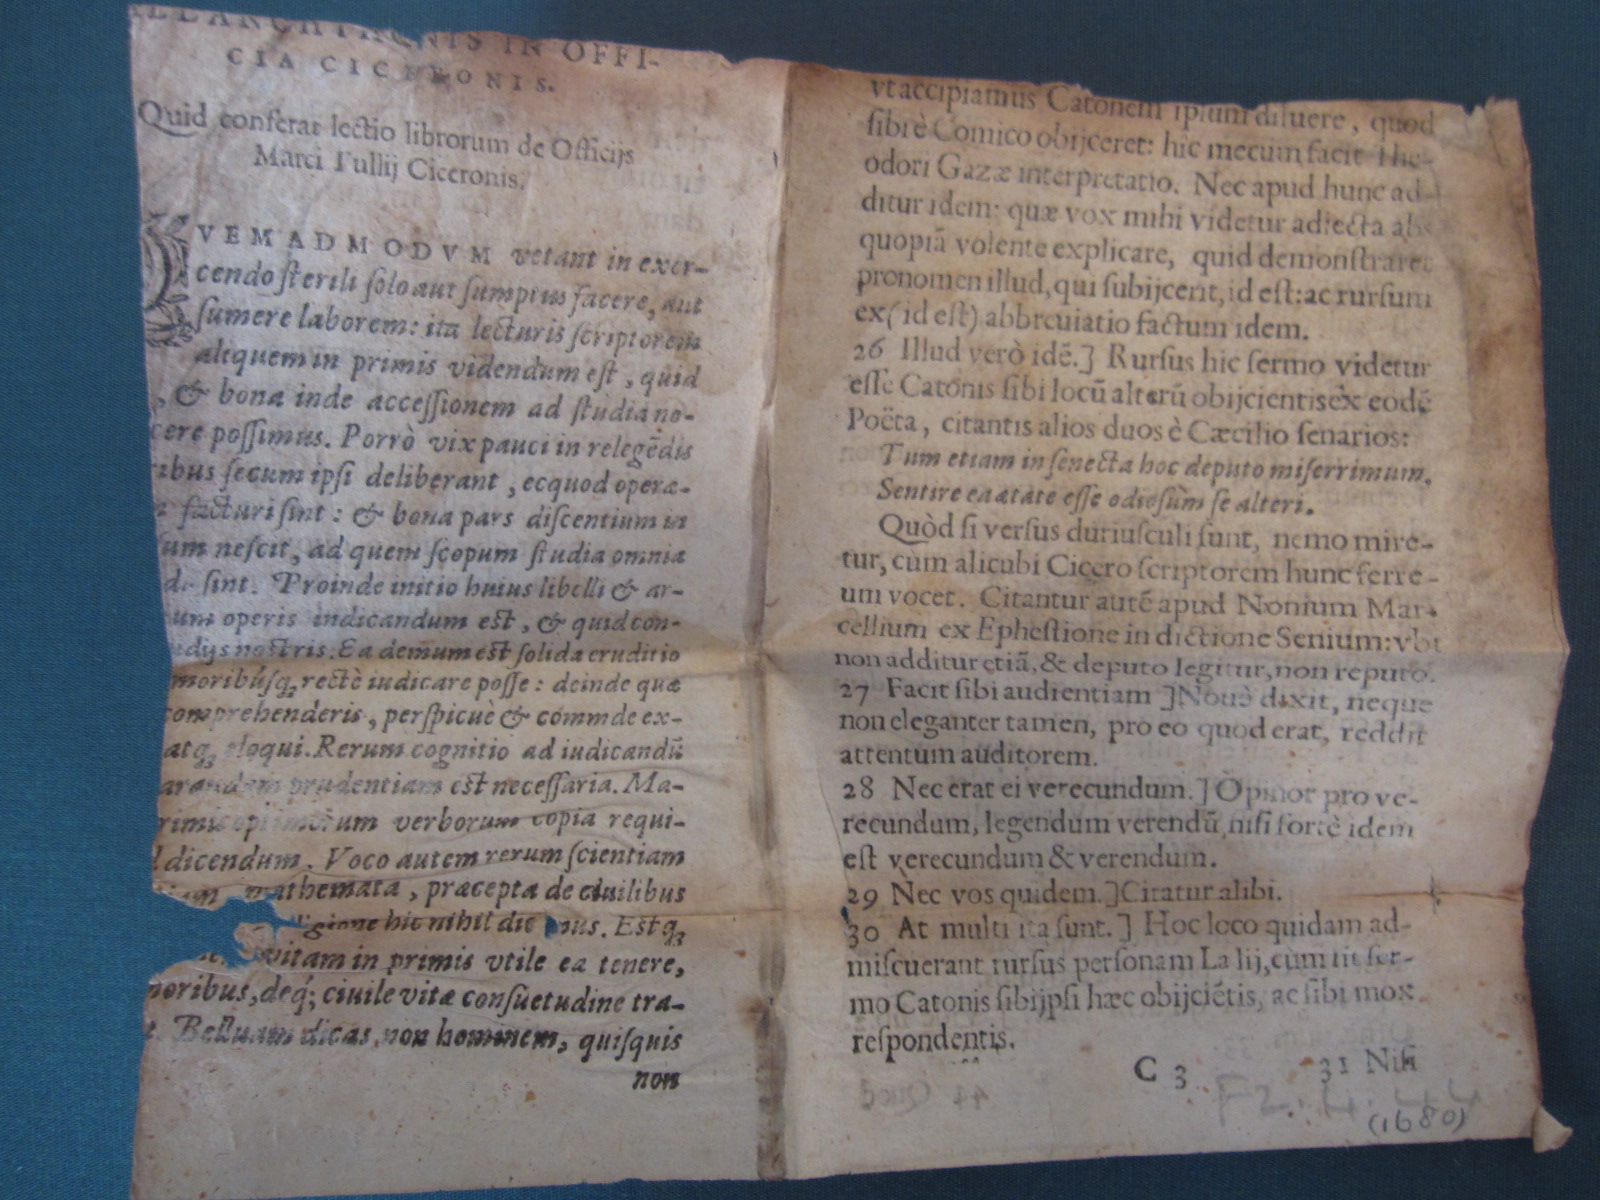 MELANCHTHONIS IN OFFI-
CIA CICERONIS.
Quid conferat lectio librorum de Officijs
Marci Tullij Ciceronis.
QVEMADMODVM vetant in exer-
cendo ſterili ſolo aut ſumptus facere, aut
ſumere laborem: ita lecturis ſcriptorem
aliquem in primis videndum eſt, quid
, & bona inde acceſſionem ad ſtudia no-
cere poſſimus. Porrò vix pauci in relegēdis
ribus ſecum ipſi deliberant, ecquod operæ-
facturi ſint: & bona pars diſcentium in
ſum neſcit, ad quem ſcopum ſtudia omnia
ſint. Proinde initio huius libelli & ar-
um operis indicandum eſt, & quid con-
udijs noſtris. Ea demum eſt ſolida eruditio
moribúſq; rectè iudicare poſſe: deinde quæ
comprehenderis, perſpicuè & commde ex-
atq; eloqui. Rerum cognitio ad iudicandū
arandam prudentiam eſt neceſſaria. Ma-
rimis optimorum verborum copia requi-
dicendum. Voco autem rerum ſcientiam
mathemata, præcepta de ciuilibus
ligione hic nihil dic mus. Eſtq;
vitam in primis vtile ea tenere,
moribus, deq; ciuile vitæ conſuetudine tra-
Belluam dicas non hominem, quiſquis
non
vt accipiamus Catonem ipſum diluere, quod
ſibi è Comico obijceret: hic mecum facit The-
odori Gazæ interpretatio. Nec apud hunc ad-
ditur idem: quæ vox mihi videtur adiecta ab
quopiā volente explicare, quid demonſtraret
pronomen illud, qui ſubijcerit, id eſt: ac rurſum
ex (id eſt) abbreuiatio factum idem.
26 Illud verò idē.] Rurſus hic ſermo videtur
eſſe Catonis ſibi locū alterū obijcientis èx eodē
Poëta, citantis alios duos è Cæcilio ſenarios:
Tum etiam in ſenecta hoc deputo miſerrimum,
Sentire ea ætate eſſe odioſùm ſe alteri.
Quòd ſi verſus duriuſculi ſunt, nemo mire-
tur, cùm alicubi Cicero ſcriptorem hunc ferre-
um vocet. Citantur autē apud Nonium Mar-
cellium ex Epheſtione in dictione Senium: vbi
non additur etiā, & deputo legitur, non reputo.
27 Facit ſibi audientiam ] Nouè dixit, neque
non eleganter tamen, pro eo quod erat, reddit
attentum auditorem.
28 Nec erat ei verecundum. ] Opinor pro ve-
recundum, legendum verendū, niſi fortè idem
eſt verecundum & verendum.
29 Nec vos quidem. ] Citatur alibi.
30 At multi ita ſunt. ] Hoc loco quidam ad-
miſcuerant rurſus perſonam Lælij, cum ſit ſer-
mo Catonis ſibijpſi hæc obijciētis, ac ſibi mox
reſpondentis.
C 3 31 Niſi
(1680)